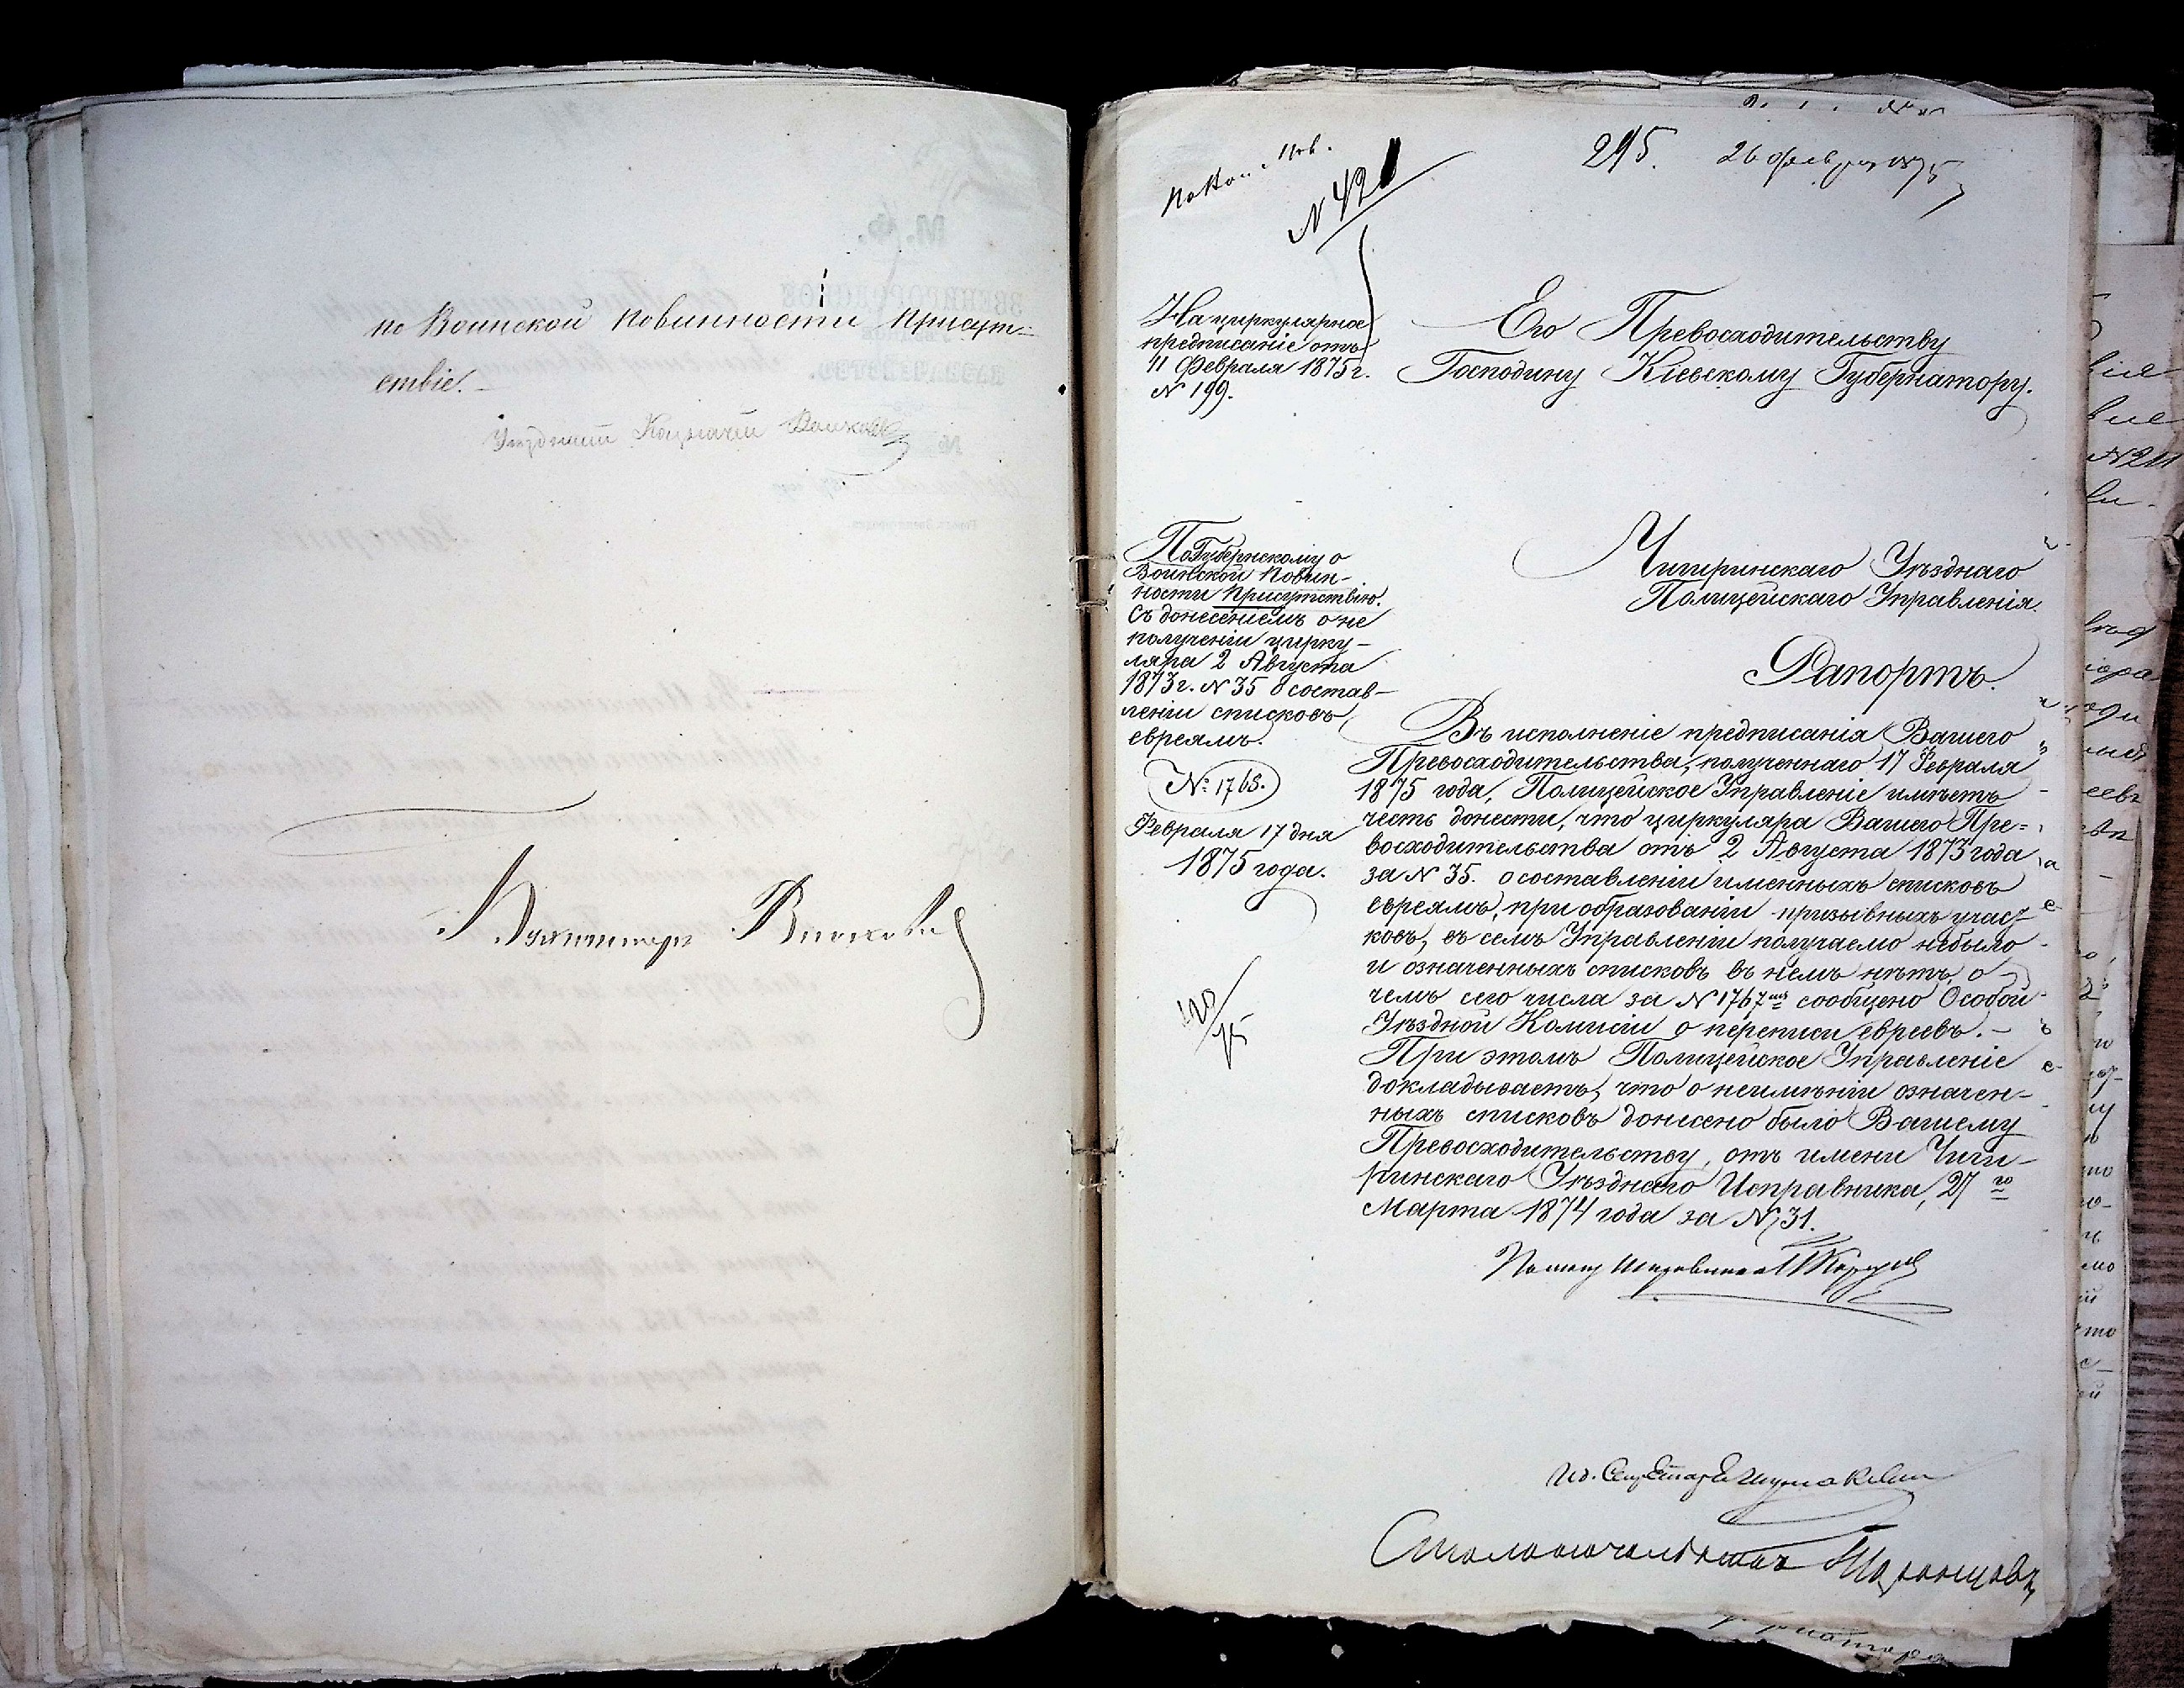 по Воинской повинности Присут-
ствіе.
Уѣздный Казначей
Бухгалтеръ
№ 421
295. 26 февр 1875
На циркулярное
предписаніе отъ
11 Февраля 1875 г.
№ 199.
Его Превосходительству
Господину Кіевскому Губернатору.
По Губернскому о
Воинской Повин-
ности Присутствію.
Съ донесеніемъ о не
полученіи цирку-
ляра 2 Августа
1873 г. № 35 о состав-
леніи списковъ
евреямъ.
№ 1768.
Февраля 17 дня
1875 года.
Чигиринскаго Уѣзднаго
Полицейскаго Управленія
Рапортъ.
Въ исполненіе предписанія Вашего
Превосходительства, полученнаго 17 Февраля
1875 года, Полицейское Управленіе имѣетъ
честь донести, что циркуляра Вашего Пре-
восходительства отъ 2 Августа 1873 года
за № 35. о составленіи именныхъ списковъ
евреямъ, при образованіи призывныхъ участ-
ковъ, въ семъ Управленіи получаемо небыло
и означенныхъ списковъ въ немъ нѣтъ, о
чемъ сего числа за № 1767 мъ сообщено Особой
Уѣздной Комисіи о переписи евреевъ. –
При этомъ Полицейское Управленіе
докладываетъ, что о неимѣніи означен-
ныхъ списковъ донесено было Вашему
Превосходительству, отъ имени Чиги-
ринскаго Уѣзднаго Исправника, 27 го
Марта 1874 года за № 31.
Помощ Исправника
Ид. Секретар
Столоначальникъ